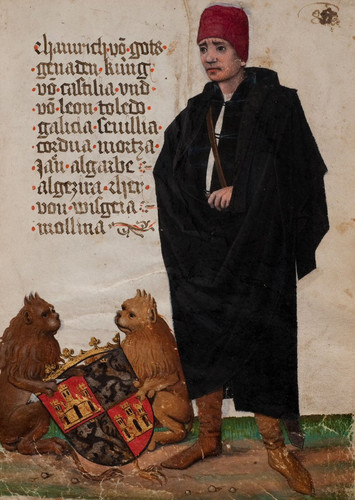 chainrich võ gots·
genaden küng·
võ castilia vnd
võ leon toledo
galicia seuillia·
cordua mortza·
Jaň algarbe
algezira zher·
von wisgeia
mollina